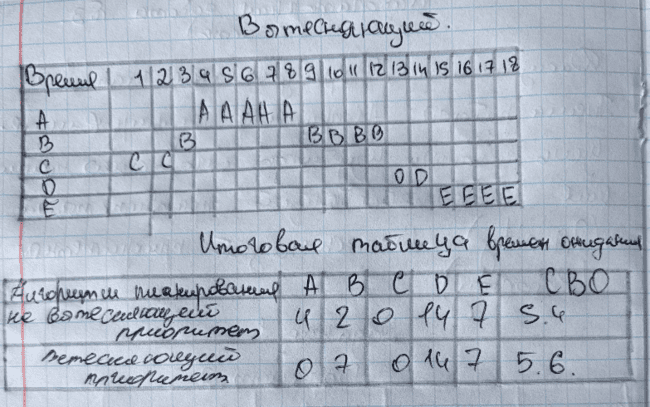 Вытесняющий.
Время 1 2 3 4 5 6 7 8 9 10 11 12 13 14 15 16 17 18
A A A A A A
B B B B B B
C C C
D D D
E E E E E
Итоговая таблица времен ожидания
Алгоритм планирования A B C D E СВО
не вытесняющий приоритет 4 2 0 14 7 5.4
вытесняющий приоритет 0 7 0 14 7 5.6.